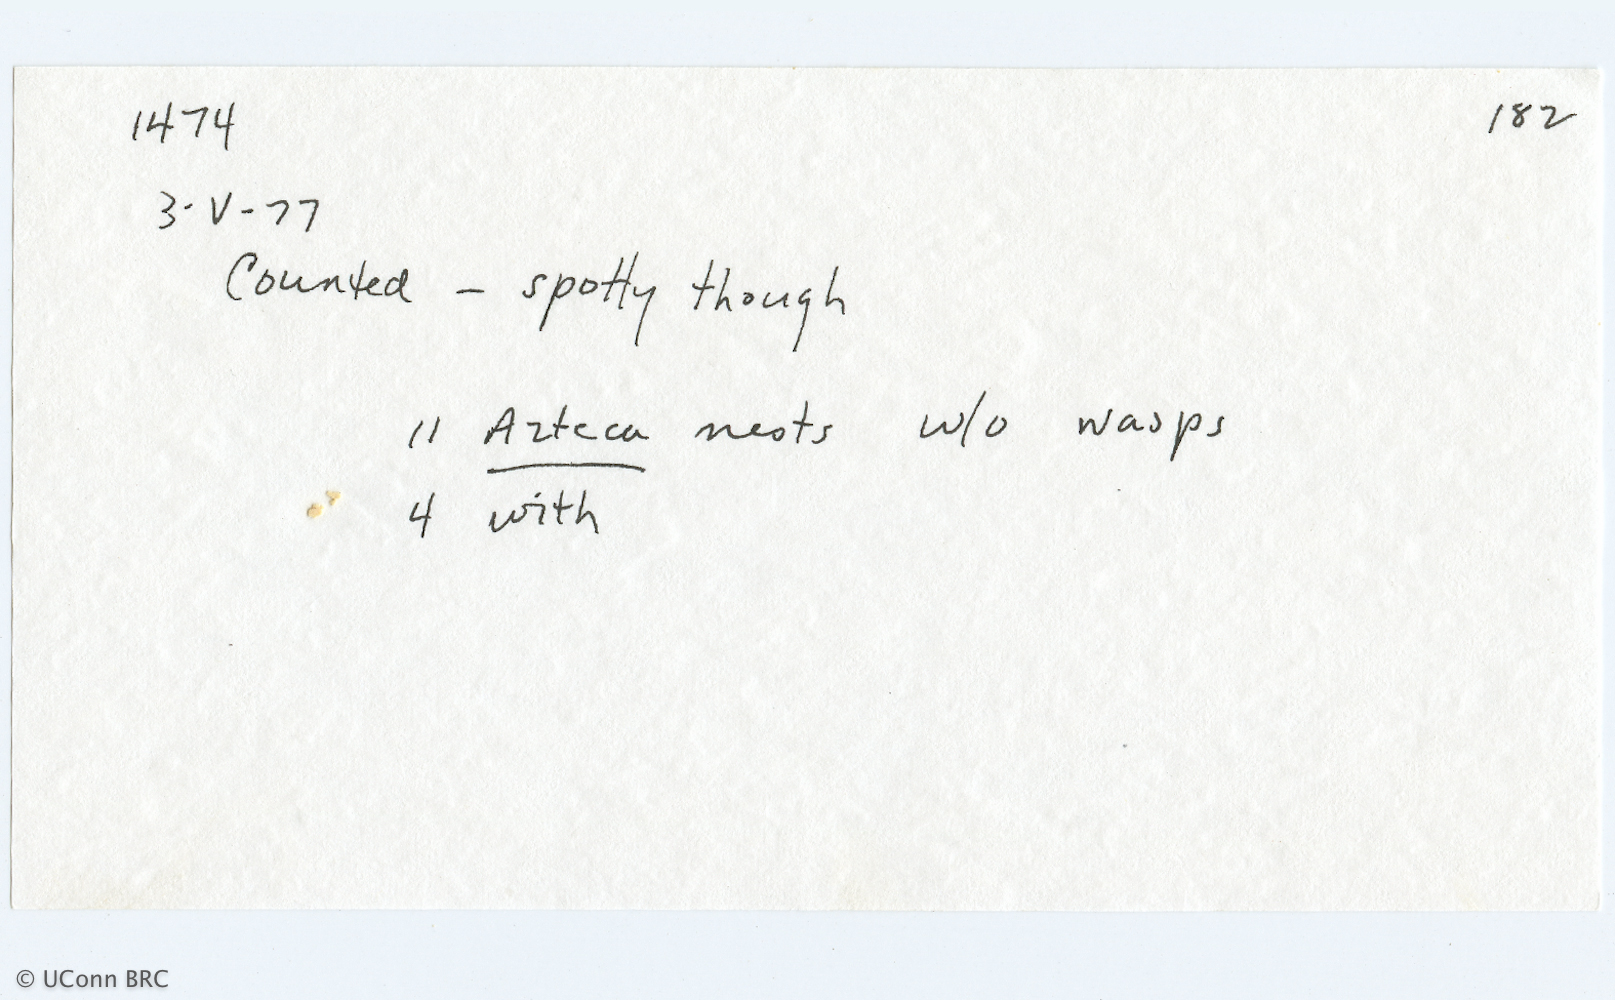 1474 182
3-V-77
Counted - spotty though
11 Azteca nests w/o wasps
4 with
© UConn BRC